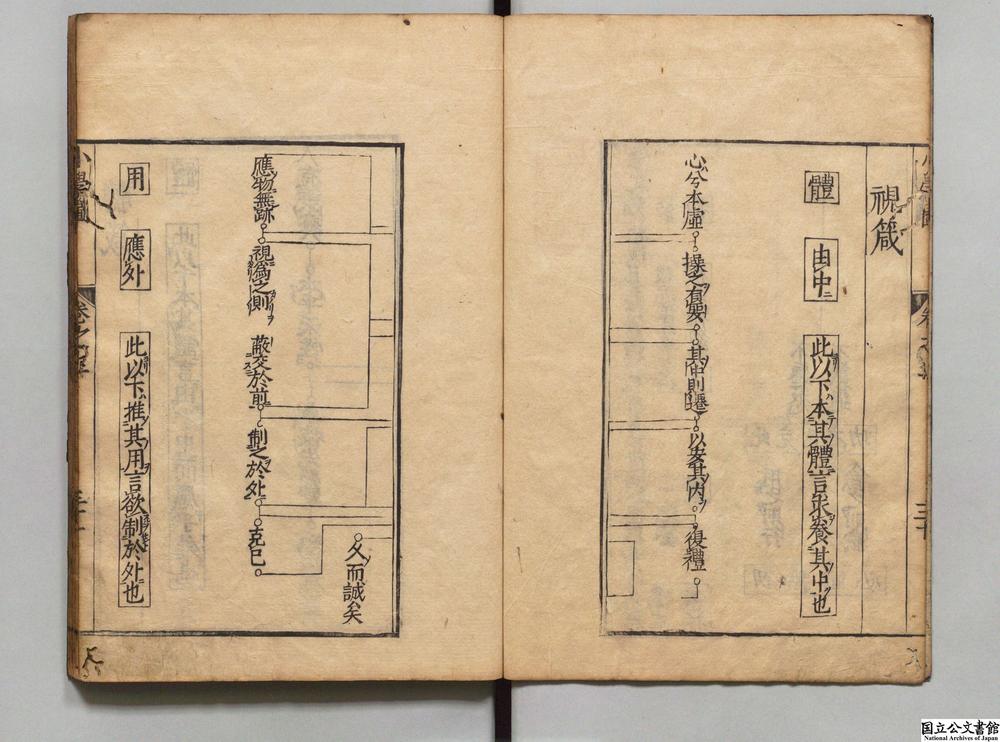 視箴
體 由中 此以下本其體言求養其中也
心兮本虛 操之有要 其中則遷 以安其内 復禮
久而誠矣
應物無跡 視爲之則 蔽交於前 制之於外 克己
用 應外 此以下推其用言欲制於外也
小學圖
国立公文書館
National Archives of Japan